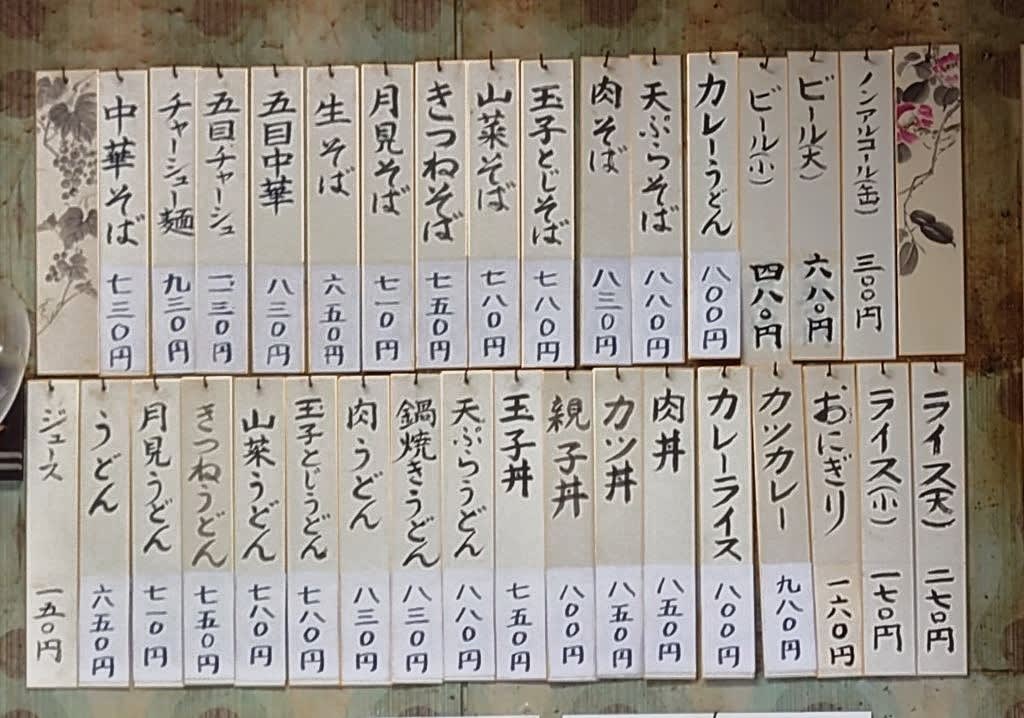 ノンアルコール(缶) 三〇〇円
ビール(大) 六八〇円
ビール(小) 四八〇円
カレーうどん 八〇〇円
天ぷらそば 八八〇円
肉そば 八三〇円
玉子とじそば 七八〇円
山菜そば 七八〇円
きつねそば 七五〇円
月見そば 七一〇円
生そば 六五〇円
五目中華 八三〇円
五目チャーシュ 一、〇三〇円
チャーシュー麺 九三〇円
中華そば 七三〇円
ライス(大) 二七〇円
ライス(小) 一七〇円
おにぎり 一六〇円
カツカレー 九八〇円
カレーライス 八〇〇円
肉丼 八五〇円
カツ丼 八五〇円
親子丼 八〇〇円
玉子丼 七五〇円
天ぷらうどん 八八〇円
鍋焼きうどん 八三〇円
肉うどん 八三〇円
玉子とじうどん 七八〇円
山菜うどん 七八〇円
きつねうどん 七五〇円
月見うどん 七一〇円
うどん 六五〇円
ジュース 一五〇円